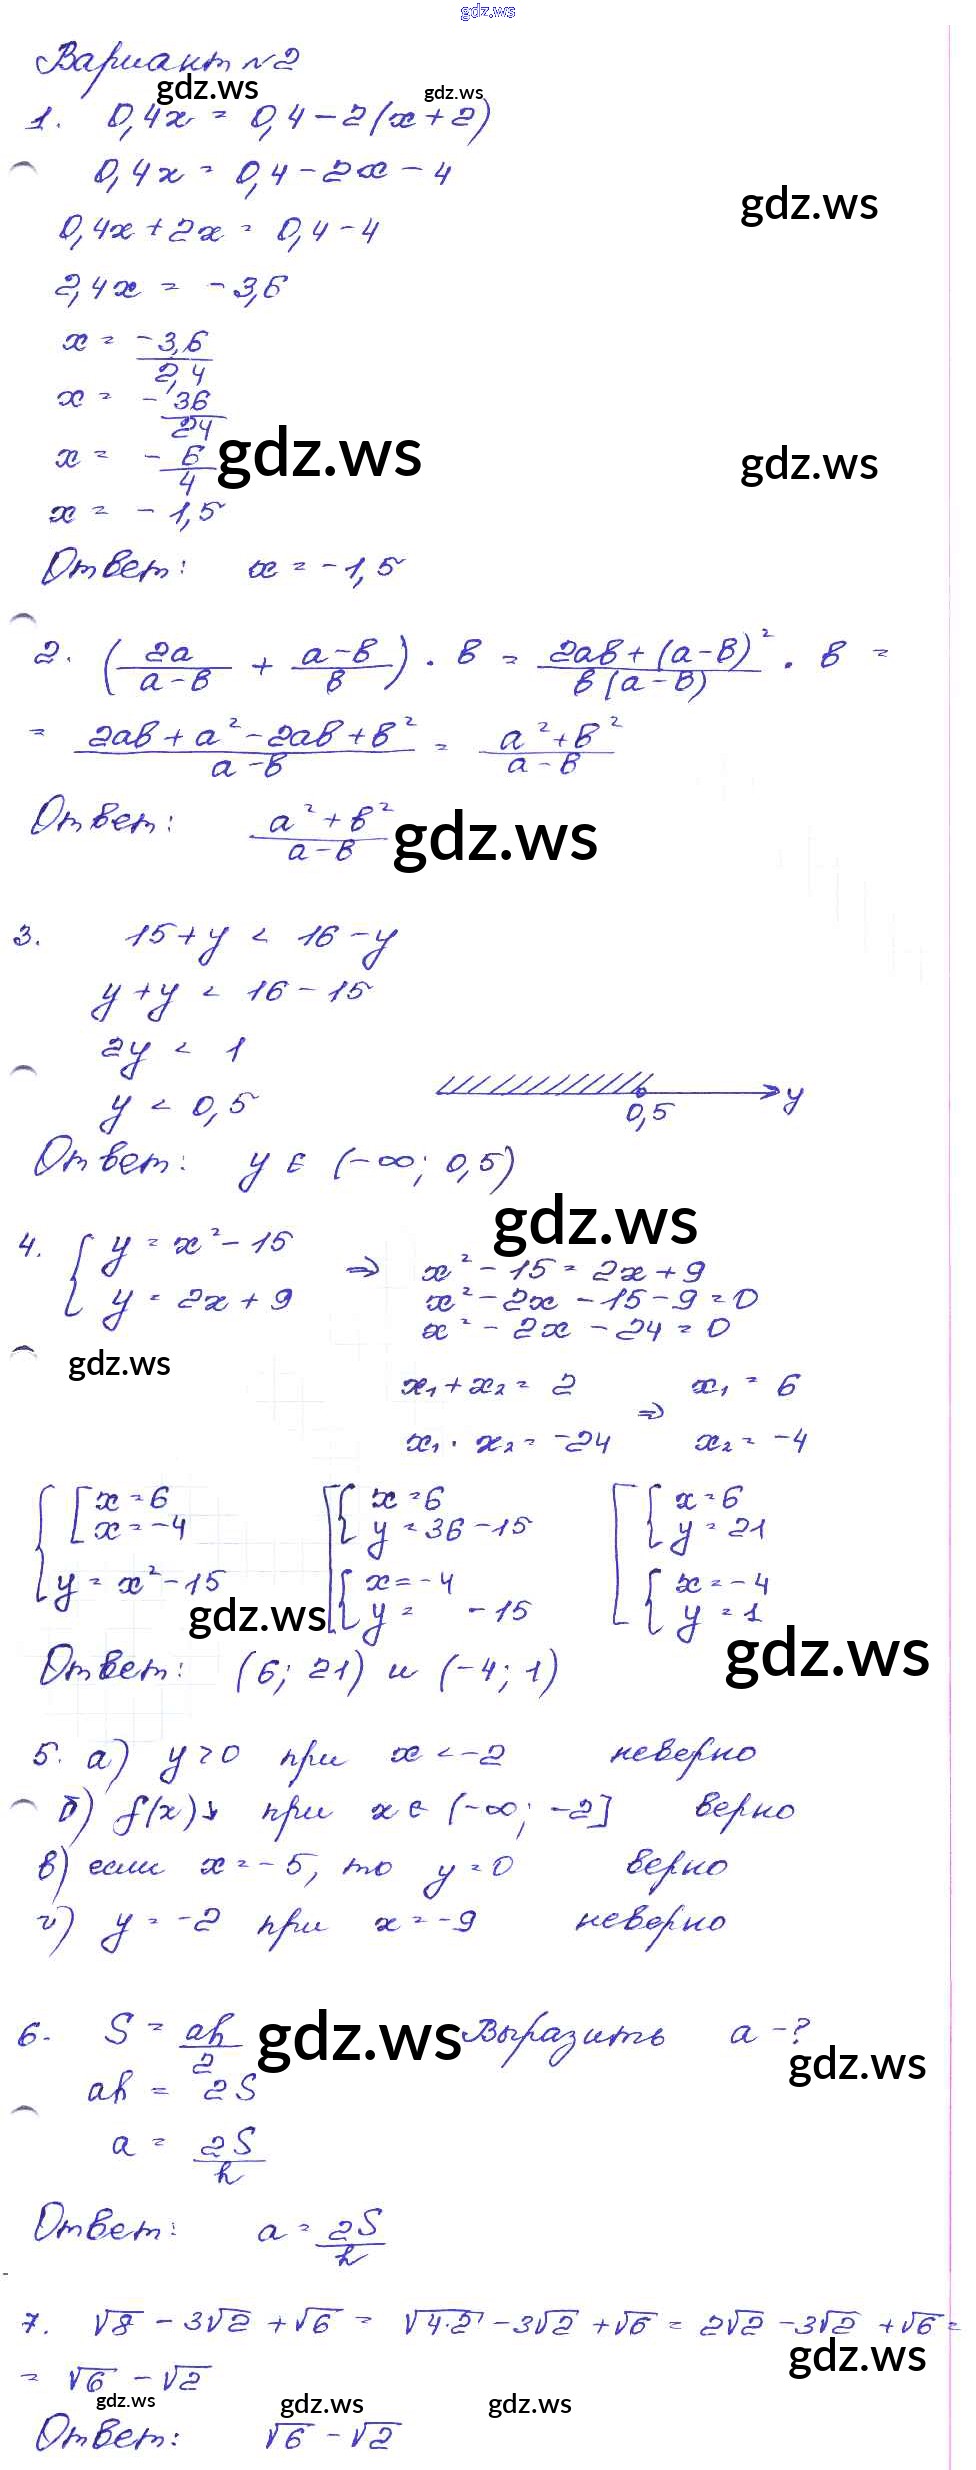 gdz.ws
Вариант №2
gdz.ws gdz.ws
1. 0,4x = 0,4 - 2(x+2)
0,4x = 0,4 - 2x - 4
gdz.ws
0,4x + 2x = 0,4 - 4
2,4x = -3,6
x = -3,6/2,4
x = -36/24
x = -6/4
gdz.ws gdz.ws
x = -1,5
Ответ: x = -1,5
2. (2a/(a-b) + (a-b)/b) · b = (2ab + (a-b)²)/(b(a-b)) · b =
= (2ab + a² - 2ab + b²)/(a-b) = (a² + b²)/(a-b)
Ответ: (a² + b²)/(a-b)
gdz.ws
3. 15 + y < 16 - y
y + y < 16 - 15
2y < 1
y < 0,5
0,5 y
Ответ: y ∈ (-∞; 0,5)
gdz.ws
4. { y = x² - 15 ⇒ x² - 15 = 2x + 9
y = 2x + 9 x² - 2x - 15 - 9 = 0
x² - 2x - 24 = 0
gdz.ws
x₁ + x₂ = 2 ⇒ x₁ = 6
x₁ · x₂ = -24 x₂ = -4
{ [ x = 6 [ { x = 6 [ { x = 6
x = -4 y = 36 - 15 y = 21
y = x² - 15 { x = -4 { x = -4
y = - 15 y = 1
gdz.ws gdz.ws
Ответ: (6; 21) и (-4; 1)
5. а) y > 0 при x < -2 неверно
б) f(x)↓ при x ∈ (-∞; -2] верно
в) если x = -5, то y = 0 верно
г) y = -2 при x = -9 неверно
6. S = ah/2 Выразить a - ?
gdz.ws gdz.ws
ah = 2S
a = 2S/h
Ответ: a = 2S/h
7. √8 - 3√2 + √6 = √(4·2) - 3√2 + √6 = 2√2 - 3√2 + √6 =
gdz.ws
= √6 - √2
gdz.ws gdz.ws gdz.ws
Ответ: √6 - √2